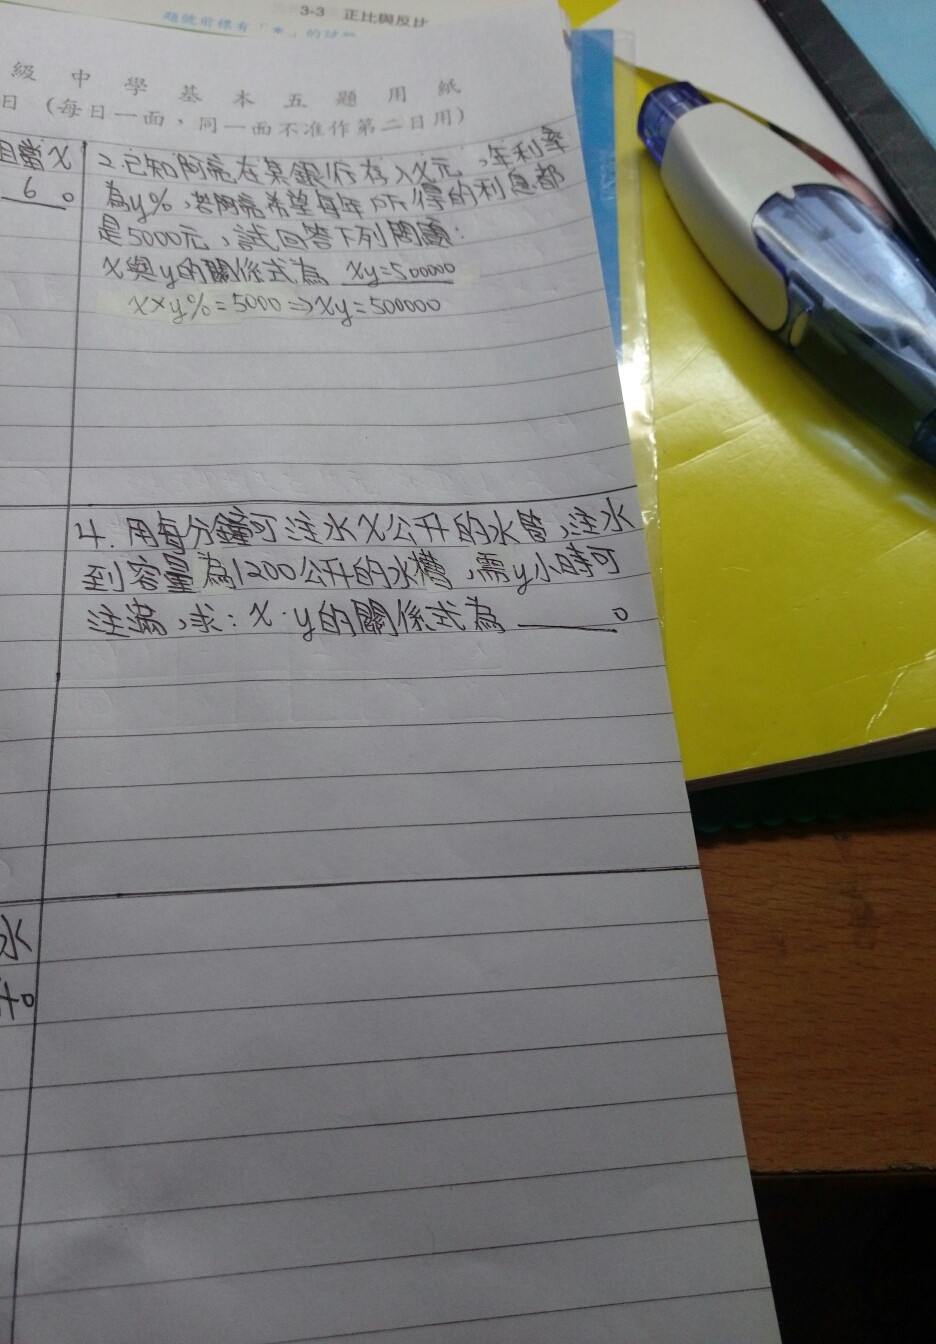 3-3 正比與反比
題號前標有「*」的試
級中學基本五題用紙
日(每日一面,同一面不准作第二日用)
且當x
6。
2.已知阿亮在某銀行存入x元,年利率
為y%,若阿亮希望每年所得的利息都
是5000元,試回答下列問題:
x與y的關係式為 xy=500000
x×y%=5000⇒xy=500000
4.用每分鐘可注水x公升的水管,注水
到容量為1200公升的水槽,需y小時可
注滿,求:x、y的關係式為______。
水
升。